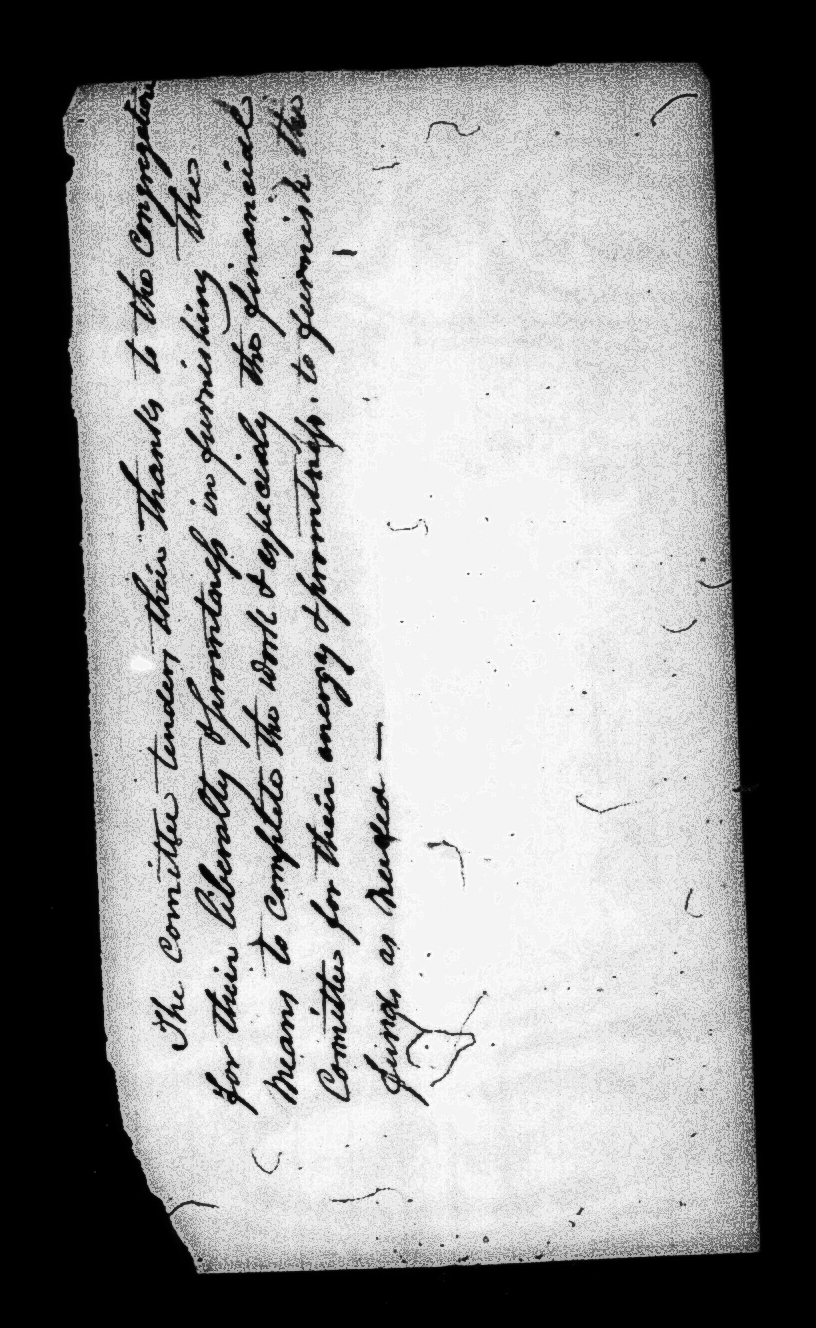 The Comittee tenders their thanks to the Congregation
for their liberalty & promtness in furnishing the
means to complete the work & especialy the financial
Comittee for their energy & promtness, to furnish the
funds as needed —